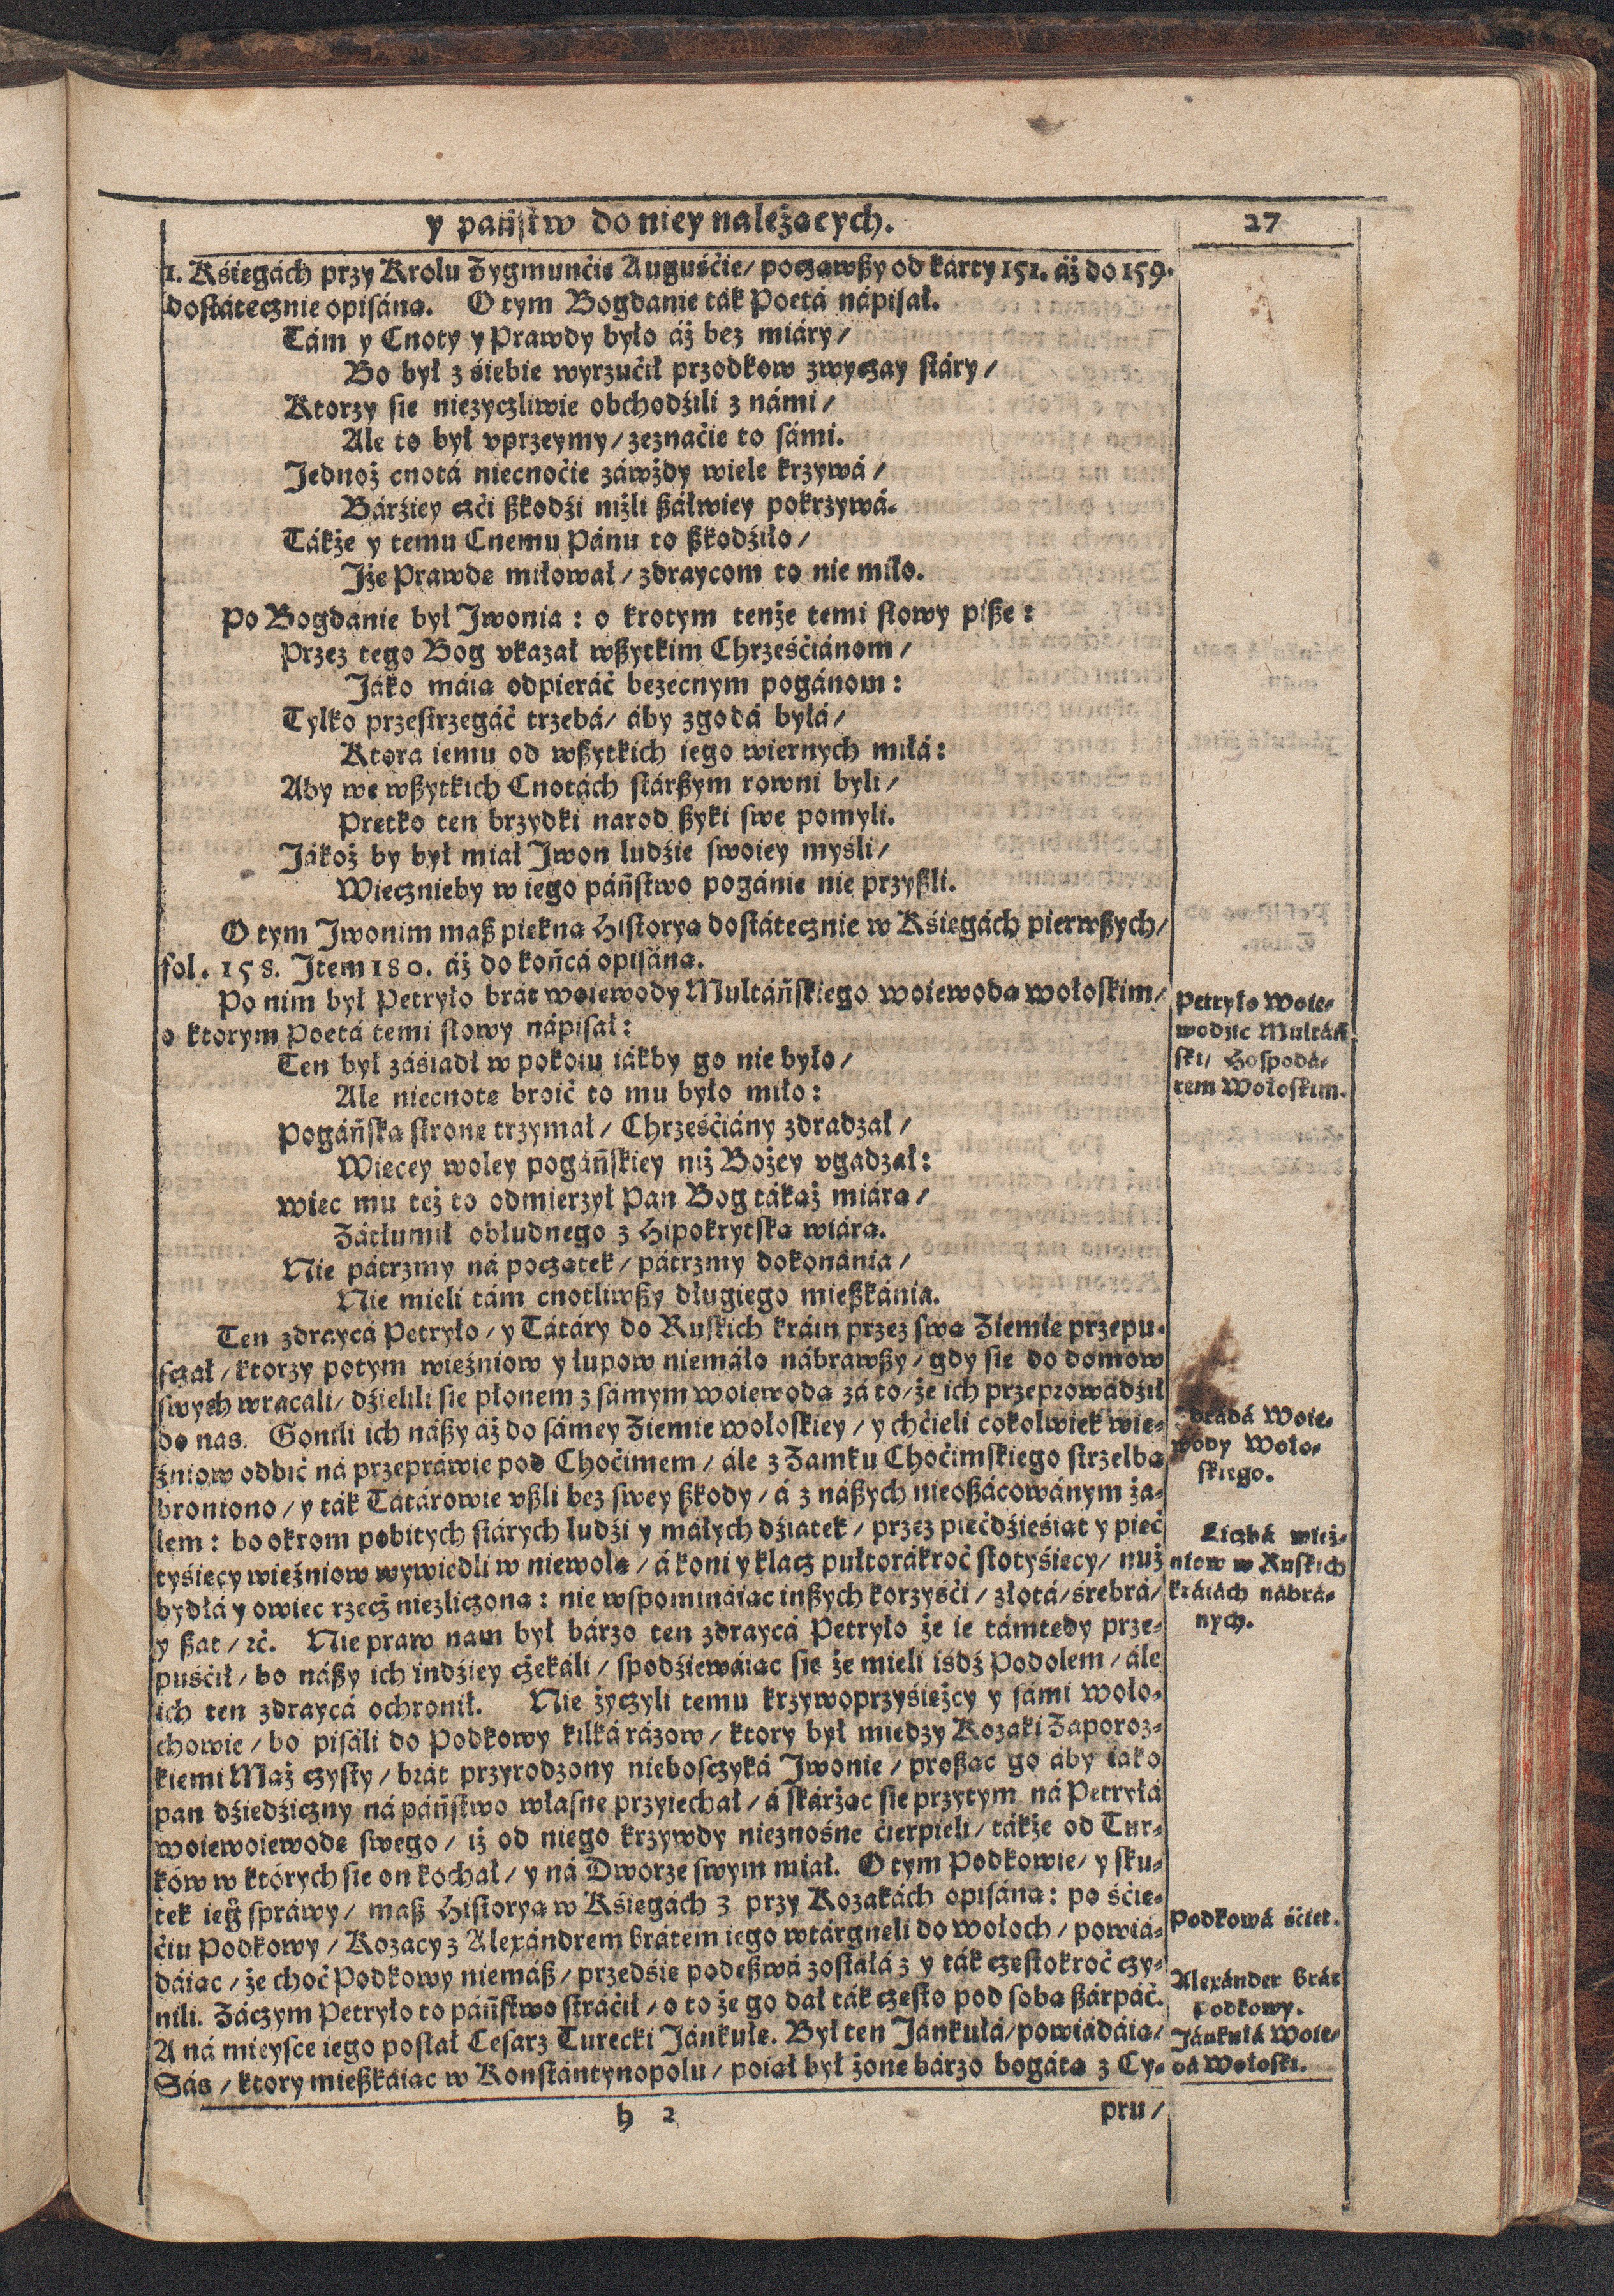 y państw do niey należących.
27
1. Kśięgách przy Krolu Zygmunćie Auguśćie/ począwßy od kárty 151. áż do 159.
dostátecznie opisána. O tym Bogdanie ták Poetá nápisał.
Tám y Cnoty y Prawdy było áż bez miáry/
Bo był z śiebie wyrzućił przodkow zwyczay stáry/
Ktorzy sie niezyczliwie obchodźili z námi/
Ale to był vprzeymy/ zeznaćie to sámi.
Jednoż cnotá niecnoćie záwżdy wiele krzywá/
Bárźiey czći ßkodźi niżli ßáłwiey pokrzywá.
Tákże y temu Cnemu Pánu to ßkodźiło/
Jże Prawdę miłował/ zdraycom to nie miło.
Po Bogdanie był Jwonia: o krotym tenże temi słowy piße:
Przez tego Bog vkazał wßytkim Chrześćiánom/
Jáko máią odpieráć bezecnym pogánom:
Tylko przestrzegáć trzebá/ áby zgodá byłá/
Ktora iemu od wßytkich iego wiernych miłá:
Aby we wßytkich Cnotách stárßym rowni byli/
Prętko ten brzydki narod ßyki swe pomyli.
Jákoż by był miał Jwon ludźie swoiey myśli/
Wiecznieby w iego páństwo pogánie nie przyßli.
O tym Jwonim maß piękną Historyą dostátecznie w Kśięgách pierwßych/
fol. 158. Jtem 180. áż do końcá opisáną.
Po nim był Petryło brát woiewody Multáńskiego woiewodą wołoskim/
o ktorym Poetá temi słowy nápisał:
Petryło Woie-
wodźic Multáń
ski/ Hospodá-
rem Wołoskim.
Ten był záśiadł w pokoiu iákby go nie było/
Ale niecnotę broić to mu było miło:
Pogáńską stronę trzymał/ Chrześćiány zdradzał/
Więcey woley pogáńskiey niż Bożey vgadzał:
Więc mu też to odmierzył Pan Bog tákąż miárą/
Zátłumił obłudnego z Hipokrytską wiárą.
Nie pátrzmy ná początek/ pátrzmy dokonánia/
Nie mieli tám cnotliwßy długiego mießkánia.
Ten zdraycá Petryło/ y Tátáry do Ruskich kráin przez swą Ziemię przepu-
sczał/ ktorzy potym więźniow y łupow niemáło nábrawßy/ gdy sie do domow
swych wracáli/ dźielili sie płonem z sámym woiewodą zá to/ że ich przeprowádźił
do nas. Gonili ich náßy áż do sámey Ziemie wołoskiey/ y chćieli cokolwiek wię-
źniow odbić ná przepráwie pod Choćimem/ ále z Zamku Choćimskiego strzelbą
broniono/ y ták Tátárowie vßli bez swey ßkody/ á z náßych nieoßácowánym ża-
lem: bo okrom pobitych stárych ludźi y máłych dźiatek/ przez pięćdźieśiąt y pięć
tyśięcy więźniow wywiedli w niewolą/ á koni y klacz pułtorákroć stotyśięcy/ nuż
bydłá y owiec rzecż niezliczona: nie wspomináiąc inßych korzyśći/ złotá/ śrebrá/
y ßat/ ꝛć. Nie praw nam był bárzo ten zdraycá Petryło że ie támtędy prze-
puśćił/ bo náßy ich indźiey cżekáli/ spodźiewáiąc sie że mieli iśdź Podolem/ ále
ich ten zdraycá ochronił. Nie życzyli temu krzywoprzyśiężcy y sámi woło-
chowie/ bo pisáli do Podkowy kilká rázow/ ktory był miedzy Kozaki Zaporoz-
kiemi Mąż czysty/ brát przyrodzony nieboßczyká Jwonie/ proßąc go áby iáko
pan dźiedźiczny ná páństwo własne przyiechał/ á skárżąc sie przytym ná Petryłá
woiewoiewodę swego/ iż od niego krzywdy nieznośne ćierpieli/ tákże od Tur-
ków w których sie on kochał/ y ná Dworze swym miał. O tym Podkowie/ y sku-
tek iego spráwy/ maß Historyą w Kśięgách 3 przy Kozakách opisáną: po śćię-
ćiu Podkowy/ Kozacy z Alexándrem brátem iego wtárgnęli do wołoch/ powiá-
dáiąc/ że choć Podkowy niemáß/ przedśie podeßwá zostáłá z y ták częstokroć czy-
nili. Záczym Petryło to páństwo stráćił/ o to że go dał ták często pod sobą ßárpáć.
A ná mieysce iego posłał Cesarz Turecki Jánkułę. Był ten Jánkułá/ powiádáią/
Sás/ ktory mießkáiąc w Konstántynopolu/ poiął był żonę bárzo bogátą z Cy-
Zdrádá Woie-
wody Woło-
skiego.
Liczbá więź-
niow w Ruskich
kráiách nábrá-
nych.
Podkowá śćięt.
Alexánder brát
Podkowy.
Jánkułá Woie-
odá Wołoski.
h 2
pru/